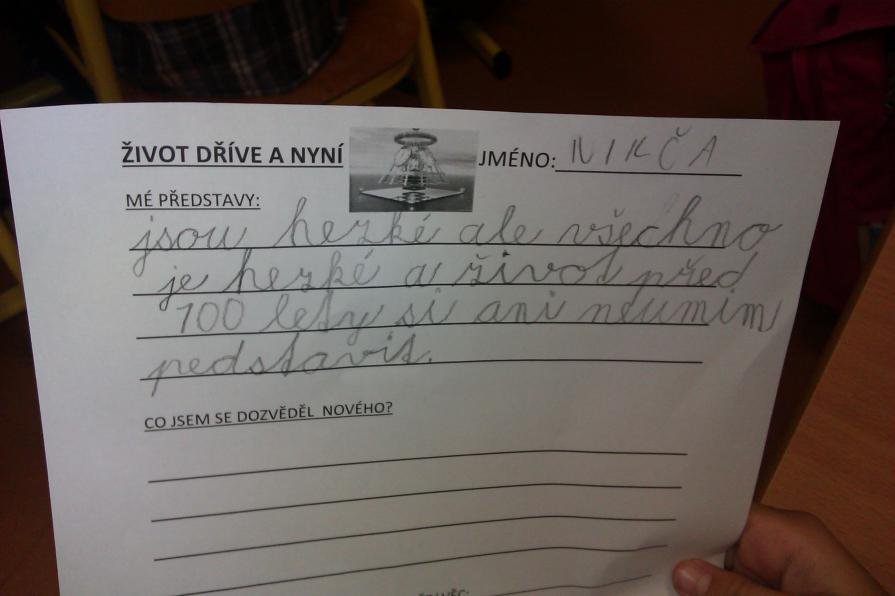 ŽIVOT DŘÍVE A NYNÍ JMÉNO: NIKČA
MÉ PŘEDSTAVY:
jsou hezké ale všechno
je hezké a život před
100 lety si ani neumim
pedstavit.
CO JSEM SE DOZVĚDĚL NOVÉHO?